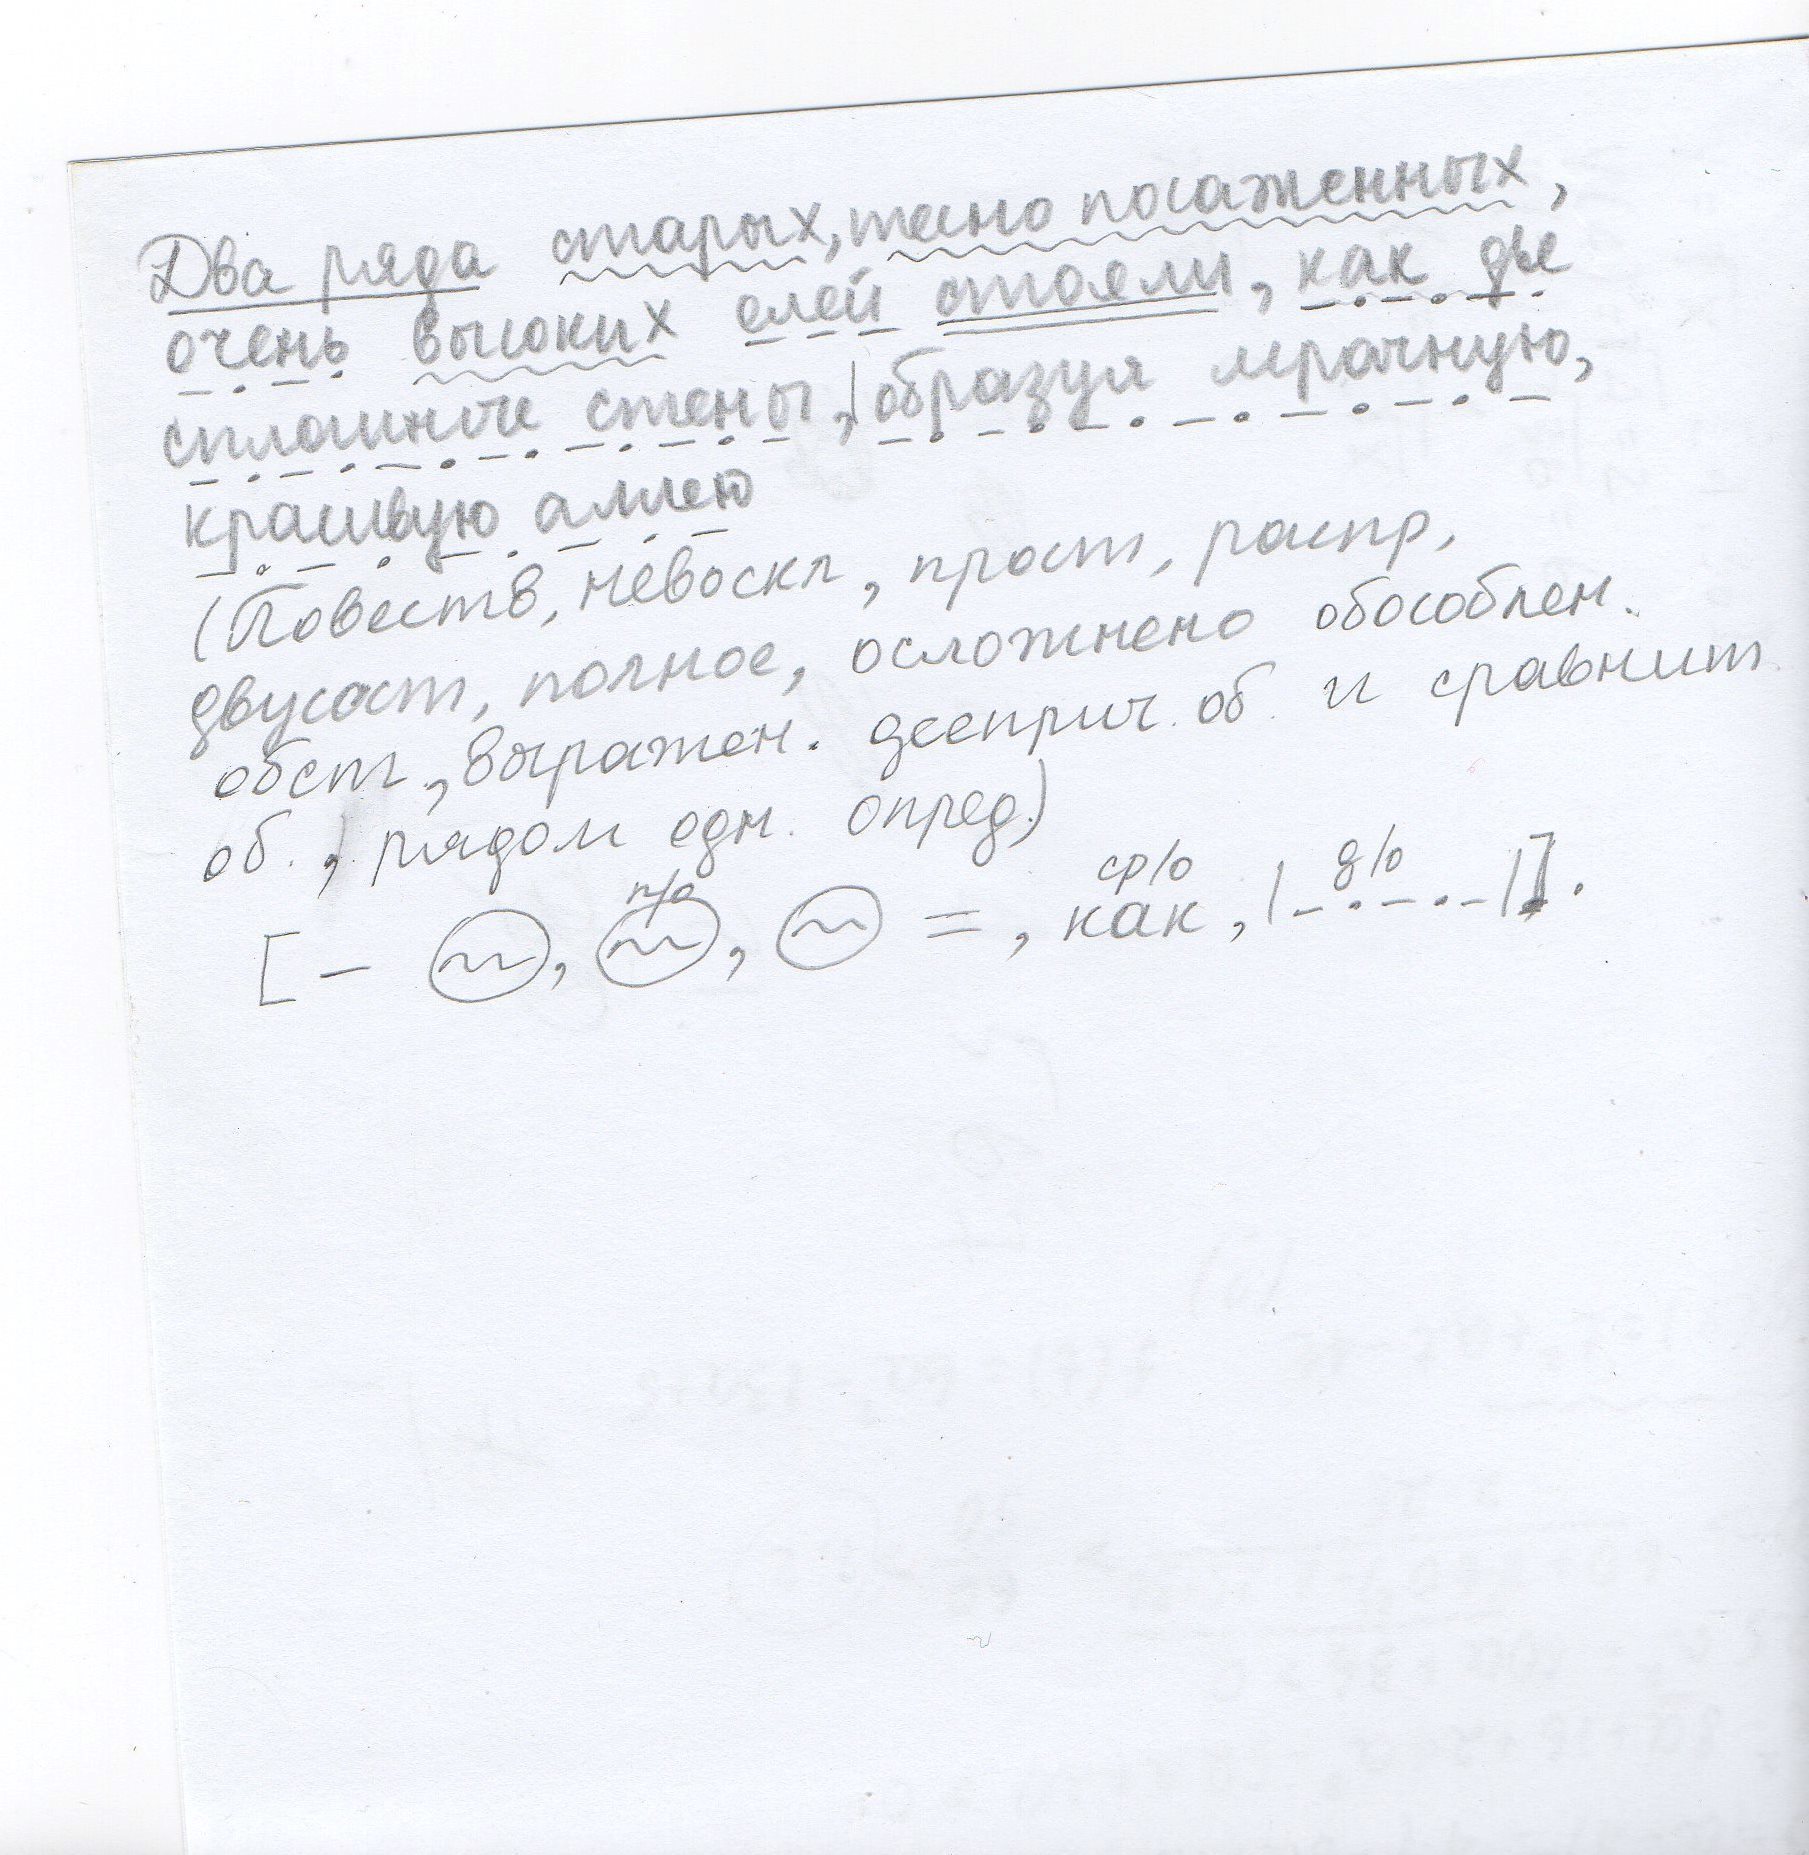 Два ряда старых, тесно посаженных,
очень высоких елей стояли, как две
сплошные стены, |образуя мрачную,
красивую аллею
(Повеств, невоскл, прост, распр,
двусост, полное, осложнено обособлен.
обст., выражен. дееприч. об. и сравнит
об., рядом одн. опред.)
п/о ср/о д/о
[– , , = , как , |–·–·–··–|].